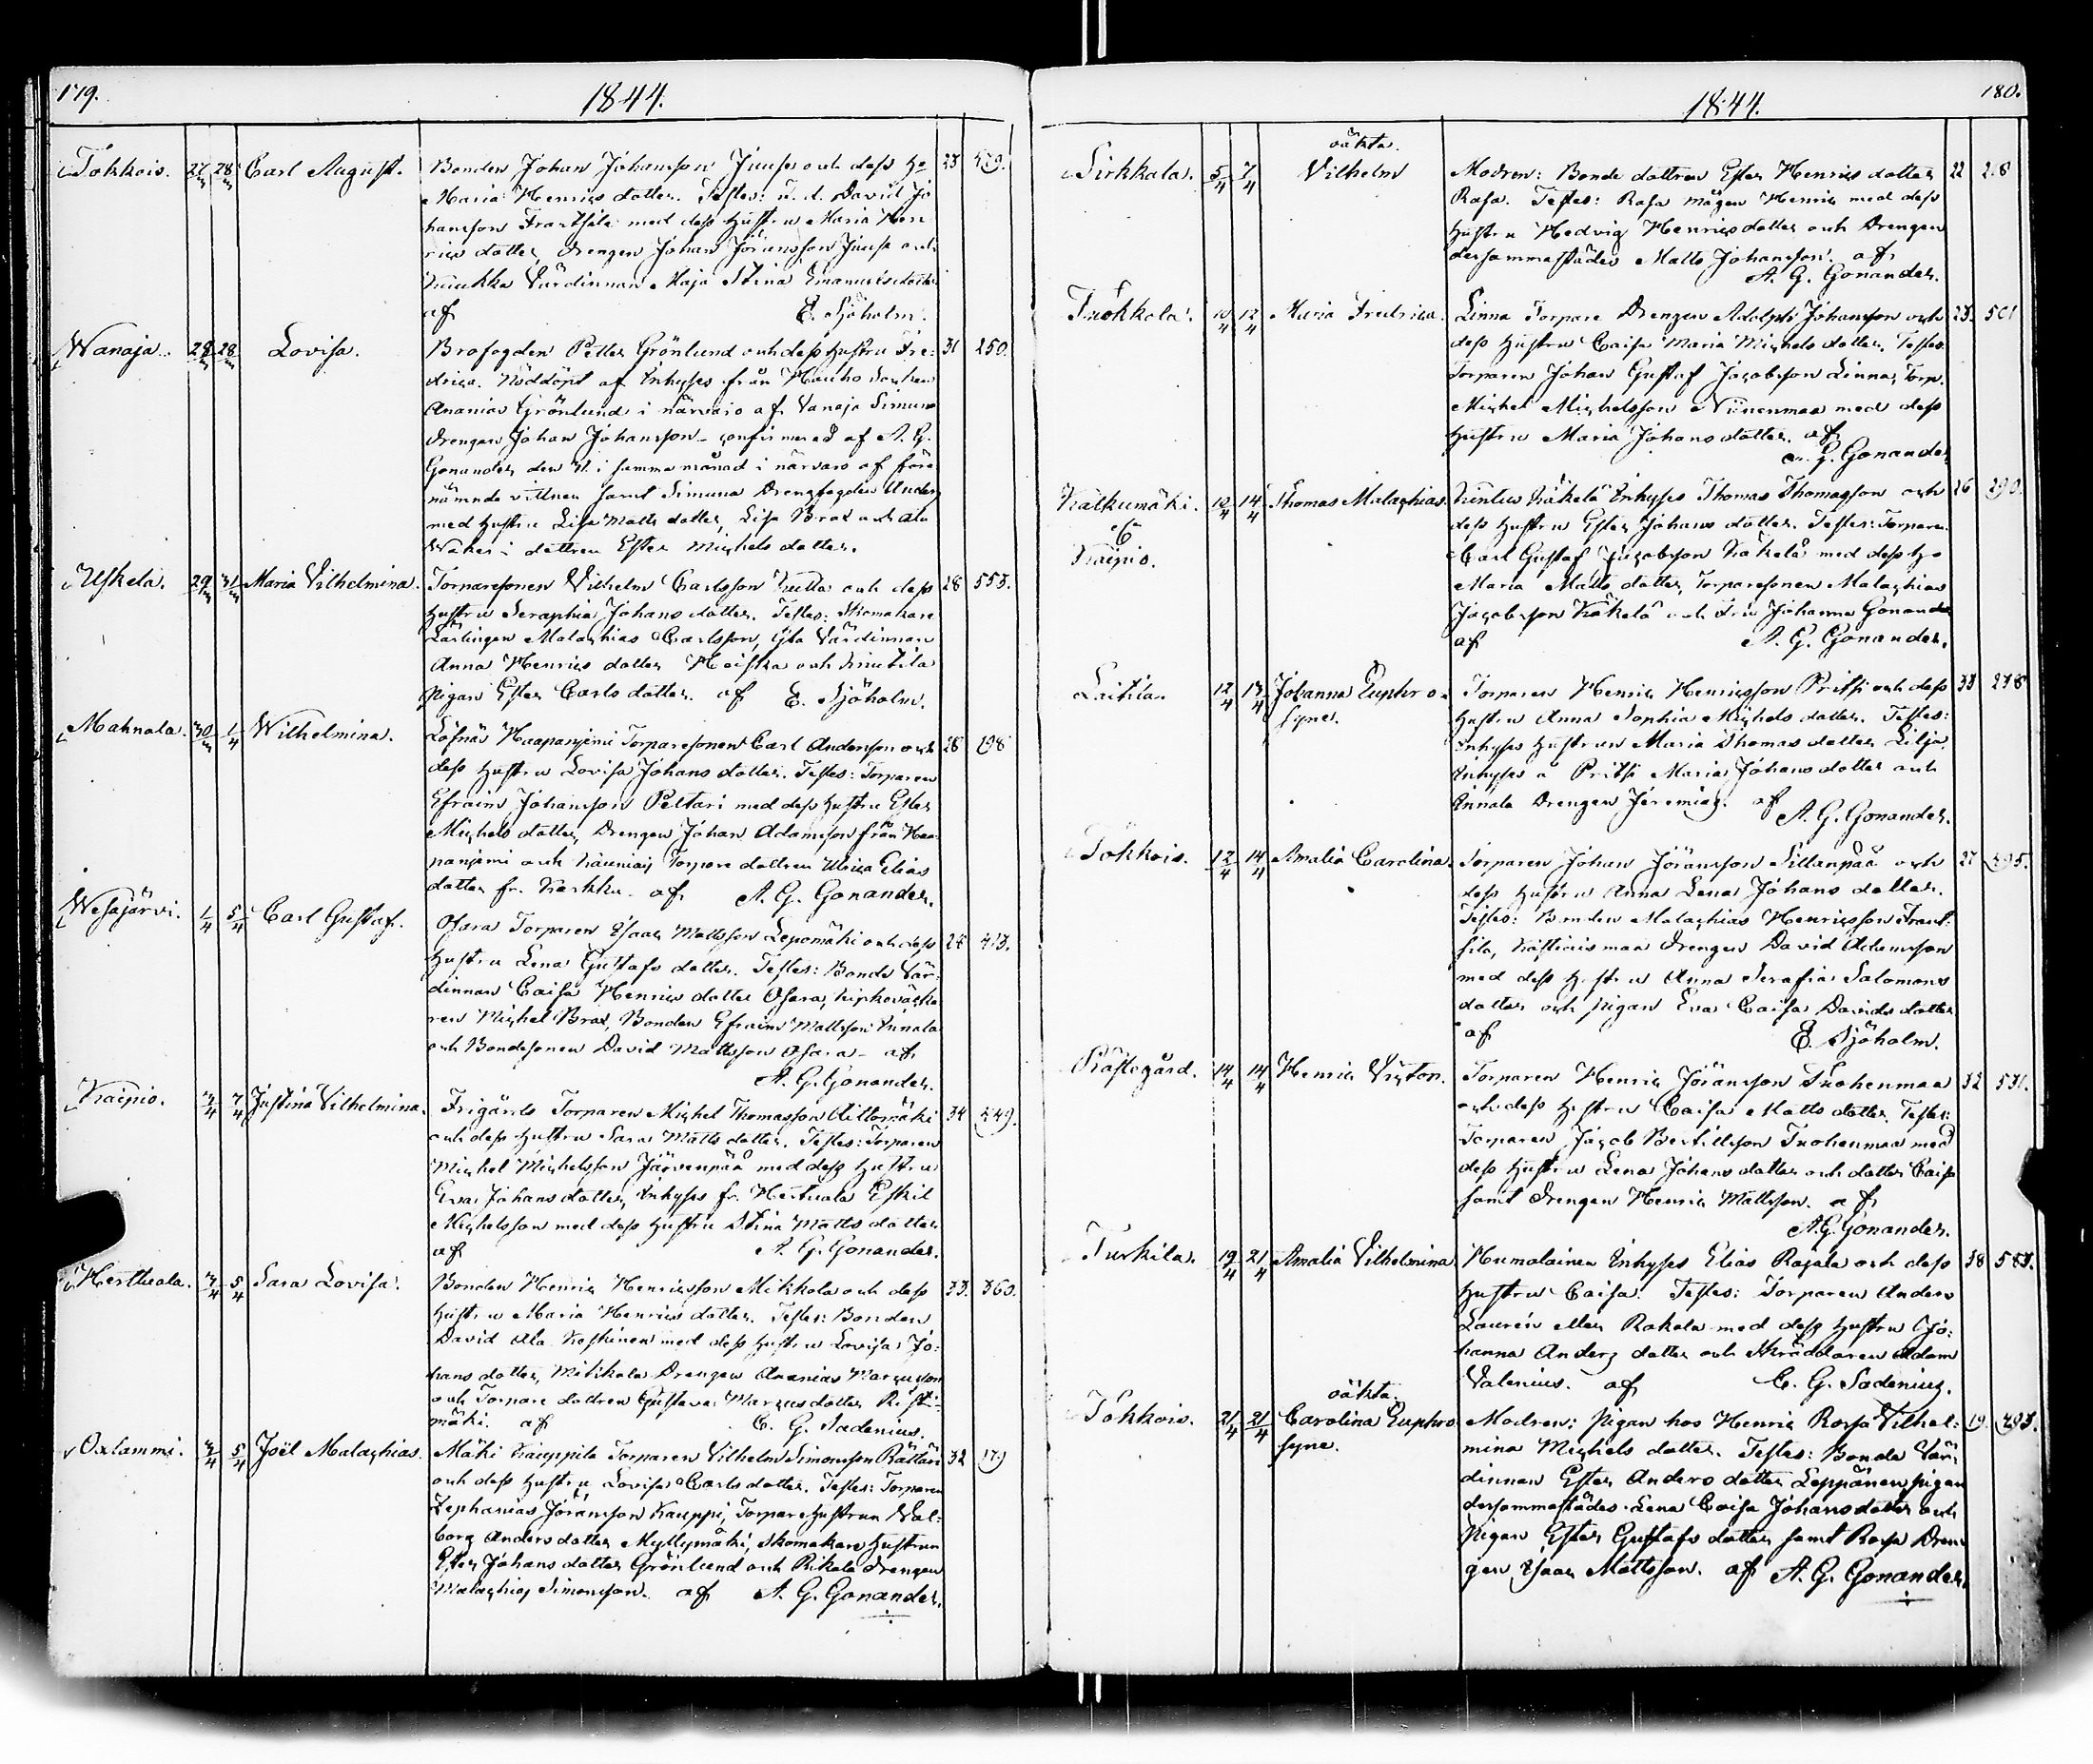 179.
1844.
Tokkois. 27/3 28/3 Carl August. Bonden Johan Johansson Juuse och dess H:u 23 479.
Maria Henrics dotter. Testes: n. d. David Jo
hansson Franssila med dess Hustru Maria Hen
rics dotter, drengen Johan Jöransson Juuse och
Värdinnan Maja Stina Emanuelsdotter
af E. Sjöholm.
Wanaja. 28/3 28/3 Lovisa. Brofogden Petter Grönlund och dess Hustru Fre: 31 250.
drica. Nöddöpt af Inhyses från Hauho Socken
Ananias Grönlund i närvaro af Vanaja Simuna
drengen Johan Johansson - confirmered af A. G.
Gonander den 31. i samma månad i närvaro af före
nämnde vittnen samt Simuna Drengfogden Anders
med Hustru Lisa Matts dotter, Lisa Brax och Ala
dottren Ester Michels dotter.
Uskela. 29/3 31/3 Maria Vilhelmina. Torparesonen Vilhelm Carlsson och dess 28 553.
Hustru Seraphia Johans dotter. Testes: Skomakare
Lärlingen Malachias Carlsson, Värdinnan
Anna Henrics dotter Heiska och
Pigan Ester Carls dotter. af E. Sjöholm.
Mahnala. 30/3 1/4 Wilhelmina. Löfnäs Haapaniemi Torparesonen Carl Andersson och 28 198
dess Hustru Lovisa Johans dotter. Testes: Torparen
Efraim Johansson Peltari med dess Hustru Ester
Michels dotter, Drengen Johan Adamsson från Haa
paniemi och Torpare dottren Ulrica Elias
dotter fr. Karkku. af A. G. Gonander.
Wesajärvi. 1/4 5/4 Carl Gustaf. Osara Torparen Isaac Mattsson Lepomäki och dess 28 413.
Hustru Lena Gustafs dotter. Testes: Bonde Vär:
dinnan Caisa Henrics dotter Osara, Kyrkoväkta
ren Michel Brax, Bonden Efraim Mattsson Innala
och Bondesonen David Mattsson Osara - af
A. G. Gonander.
Kaipio. 3/4 7/4 Justina Vilhelmina. Frigärds Torparen Michel Thomasson Aittomäki 34 549.
och dess Hustru Sara Matts dotter. Testes: Torparen
Michel Michelsson Järvenpää med dess Hustru
Eva Johans dotter, Inhyses fr. Herttuala Eskil
Michelsson med dess Hustru Stina Matts dotter
af A. G. Gonander.
Herttuala. 3/4 5/4 Sara Lovisa. Bonden Henric Henricsson Mikkola och dess 33. 360.
Hustru Maria Henrics dotter. Testes: Bonden
David Ala Keskinen med dess Hustru Lovisa Jo:
hans dotter, Mikkola Drengen Ananias Marcusson
och Torpare dottren Gustava Marcus dotter Risti:
mäki. af C. G. Sadenius.
Oxlammi. 3/4 5/4 Joël Malachias. Mäki Kauppila Torparen Vilhelm Simonsson Rättäri 32 17.
och dess Hustru Lovisa Carls dotter. Testes: Torparen
Zephanias Jöransson Kauppi, Torpare Hustrun Val:
borg Anders dotter Myllymäki, Skomakare Hustrun
Ester Johans dotter Grönlund och Rikala Drengen
Malachias Simonsson. af A. G. Gonander.
1844.
180.
Sirkkala. 5/4 7/4 oäkta. Vilhelm Modren: Bonde dottren Ester Henrics dotter 22 218
Rasa. Testes: Rasa mågen Henric med dess
Hustru Hedvig Henricsdotter och Drengen
dersammastädes Matts Johansson. af
A. G. Gonander.
Tuokkola. 10/4 12/4 Maria Fredrica. Linna Torpare Drengen Adolph Johansson och 23. 501
dess Hustru Caisa Maria Michels dotter. Testes
Torparen Johan Gustaf Jacobsson Linna, Torp.
Michel Michelsson Niinenmaa med dess
Hustru Maria Johans dotter. af
A. G. Gonander.
Kalkumäki. & Kaipio. 12/4 14/4 Thomas Malachias. Käkelä Inhyses Thomas Thomasson och 26 290.
dess Hustru Ester Johans dotter. Testes: Torparen
Carl Gustaf Jacobsson Käkelä med dess H:u
Maria Matts dotter, Torparesonen Malachias
Jacobsson Käkelä och Fru Johanna Gonander
af A. G. Gonander.
Laitia. 12/4 13/4 Johanna Euphro- Torparen Henric Henricsson Pritsi och dess 33 238
syne. Hustru Anna Sophia Michels dotter. Testes:
Inhyses Hustrun Maria Thomas dotter Lilja,
Inhyses å Pritsi Maria Johans dotter och
Innala Drengen Jeremias. af A. G. Gonander.
Tokkois. 12/4 14/4 Amalia Carolina. Torparen Johan Jöransson Sillanpää och 27 495.
dess Hustru Anna Lena Johans dotter.
Testes: Bonden Malachias Henricsson Frant:
sila, drengen David Adamsson
med dess Hustru Anna Serafia Salomons
dotter och Pigan Eva Caisa Davids dotter
af E. Sjöholm.
Prästegård. 14/4 14/4 Henric Victor. Torparen Henric Jöransson Tuohenmaa 32 531.
och dess Hustru Caisa Matts dotter. Testes:
Torparen Jacob Bertillsson Tuohenmaa med
dess Hustru Lena Johans dotter och dotter Caisa
samt Drengen Henric Mattsson. af
A. G. Gonander.
Turkila. 19/4 21/4 Amalia Vilhelmina Humalainen Inhyses Elias Rajala och dess 38 583.
Hustru Caisa. Testes: Torparen Anders
Laurén eller Rakola med dess Hustru Jo:
hanna Anders dotter och Skräddaren Adam
Valenius. af C. G. Sadenius.
Tokkois. 21/4 21/4 oäkta. Carolina Euphro Modren: Pigan hos Henric Rossa Vilhel: 19. 493.
syne. mina Michels dotter. Testes: Bonde Vär:
dinnan Ester Anders dotter Leppänen, pigan
dersammastädes Lena Caisa Johansdotter och
Pigan Ester Gustafs dotter samt Rossa Dren
gen Isaac Mattsson. af A. G. Gonander.